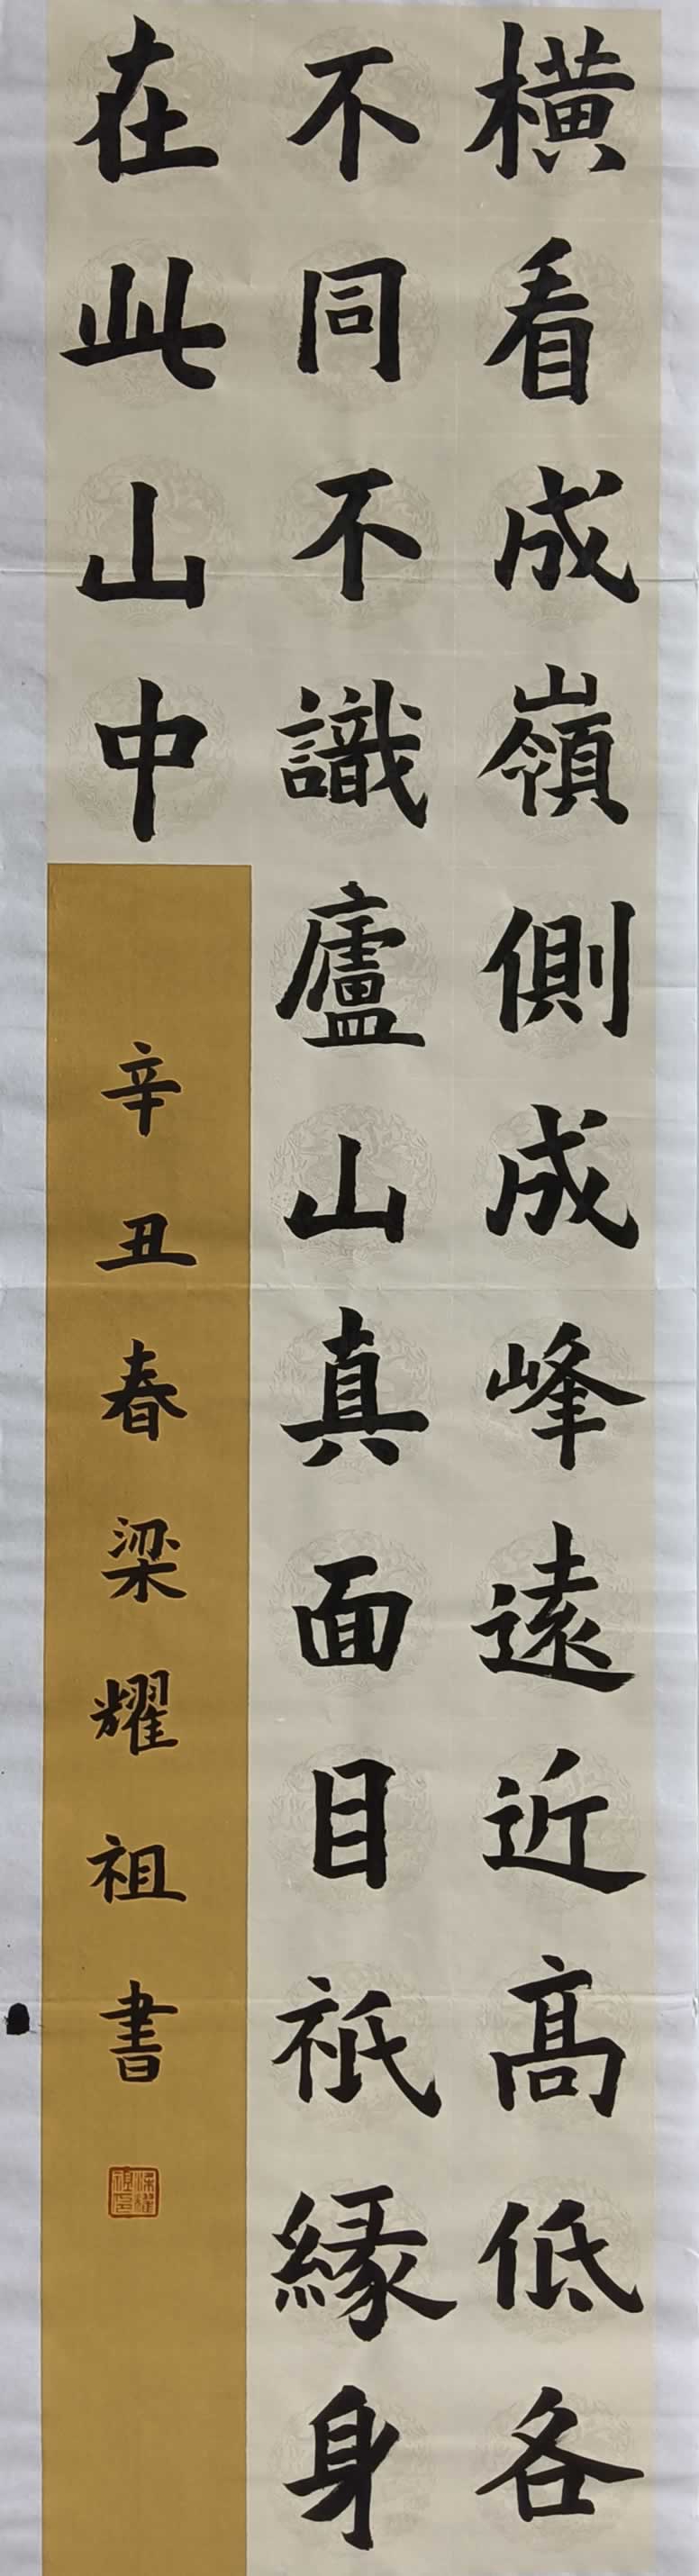 橫看成嶺側成峰遠近高低各
不同不識廬山真面目祇緣身
在此山中
辛丑春梁耀祖書